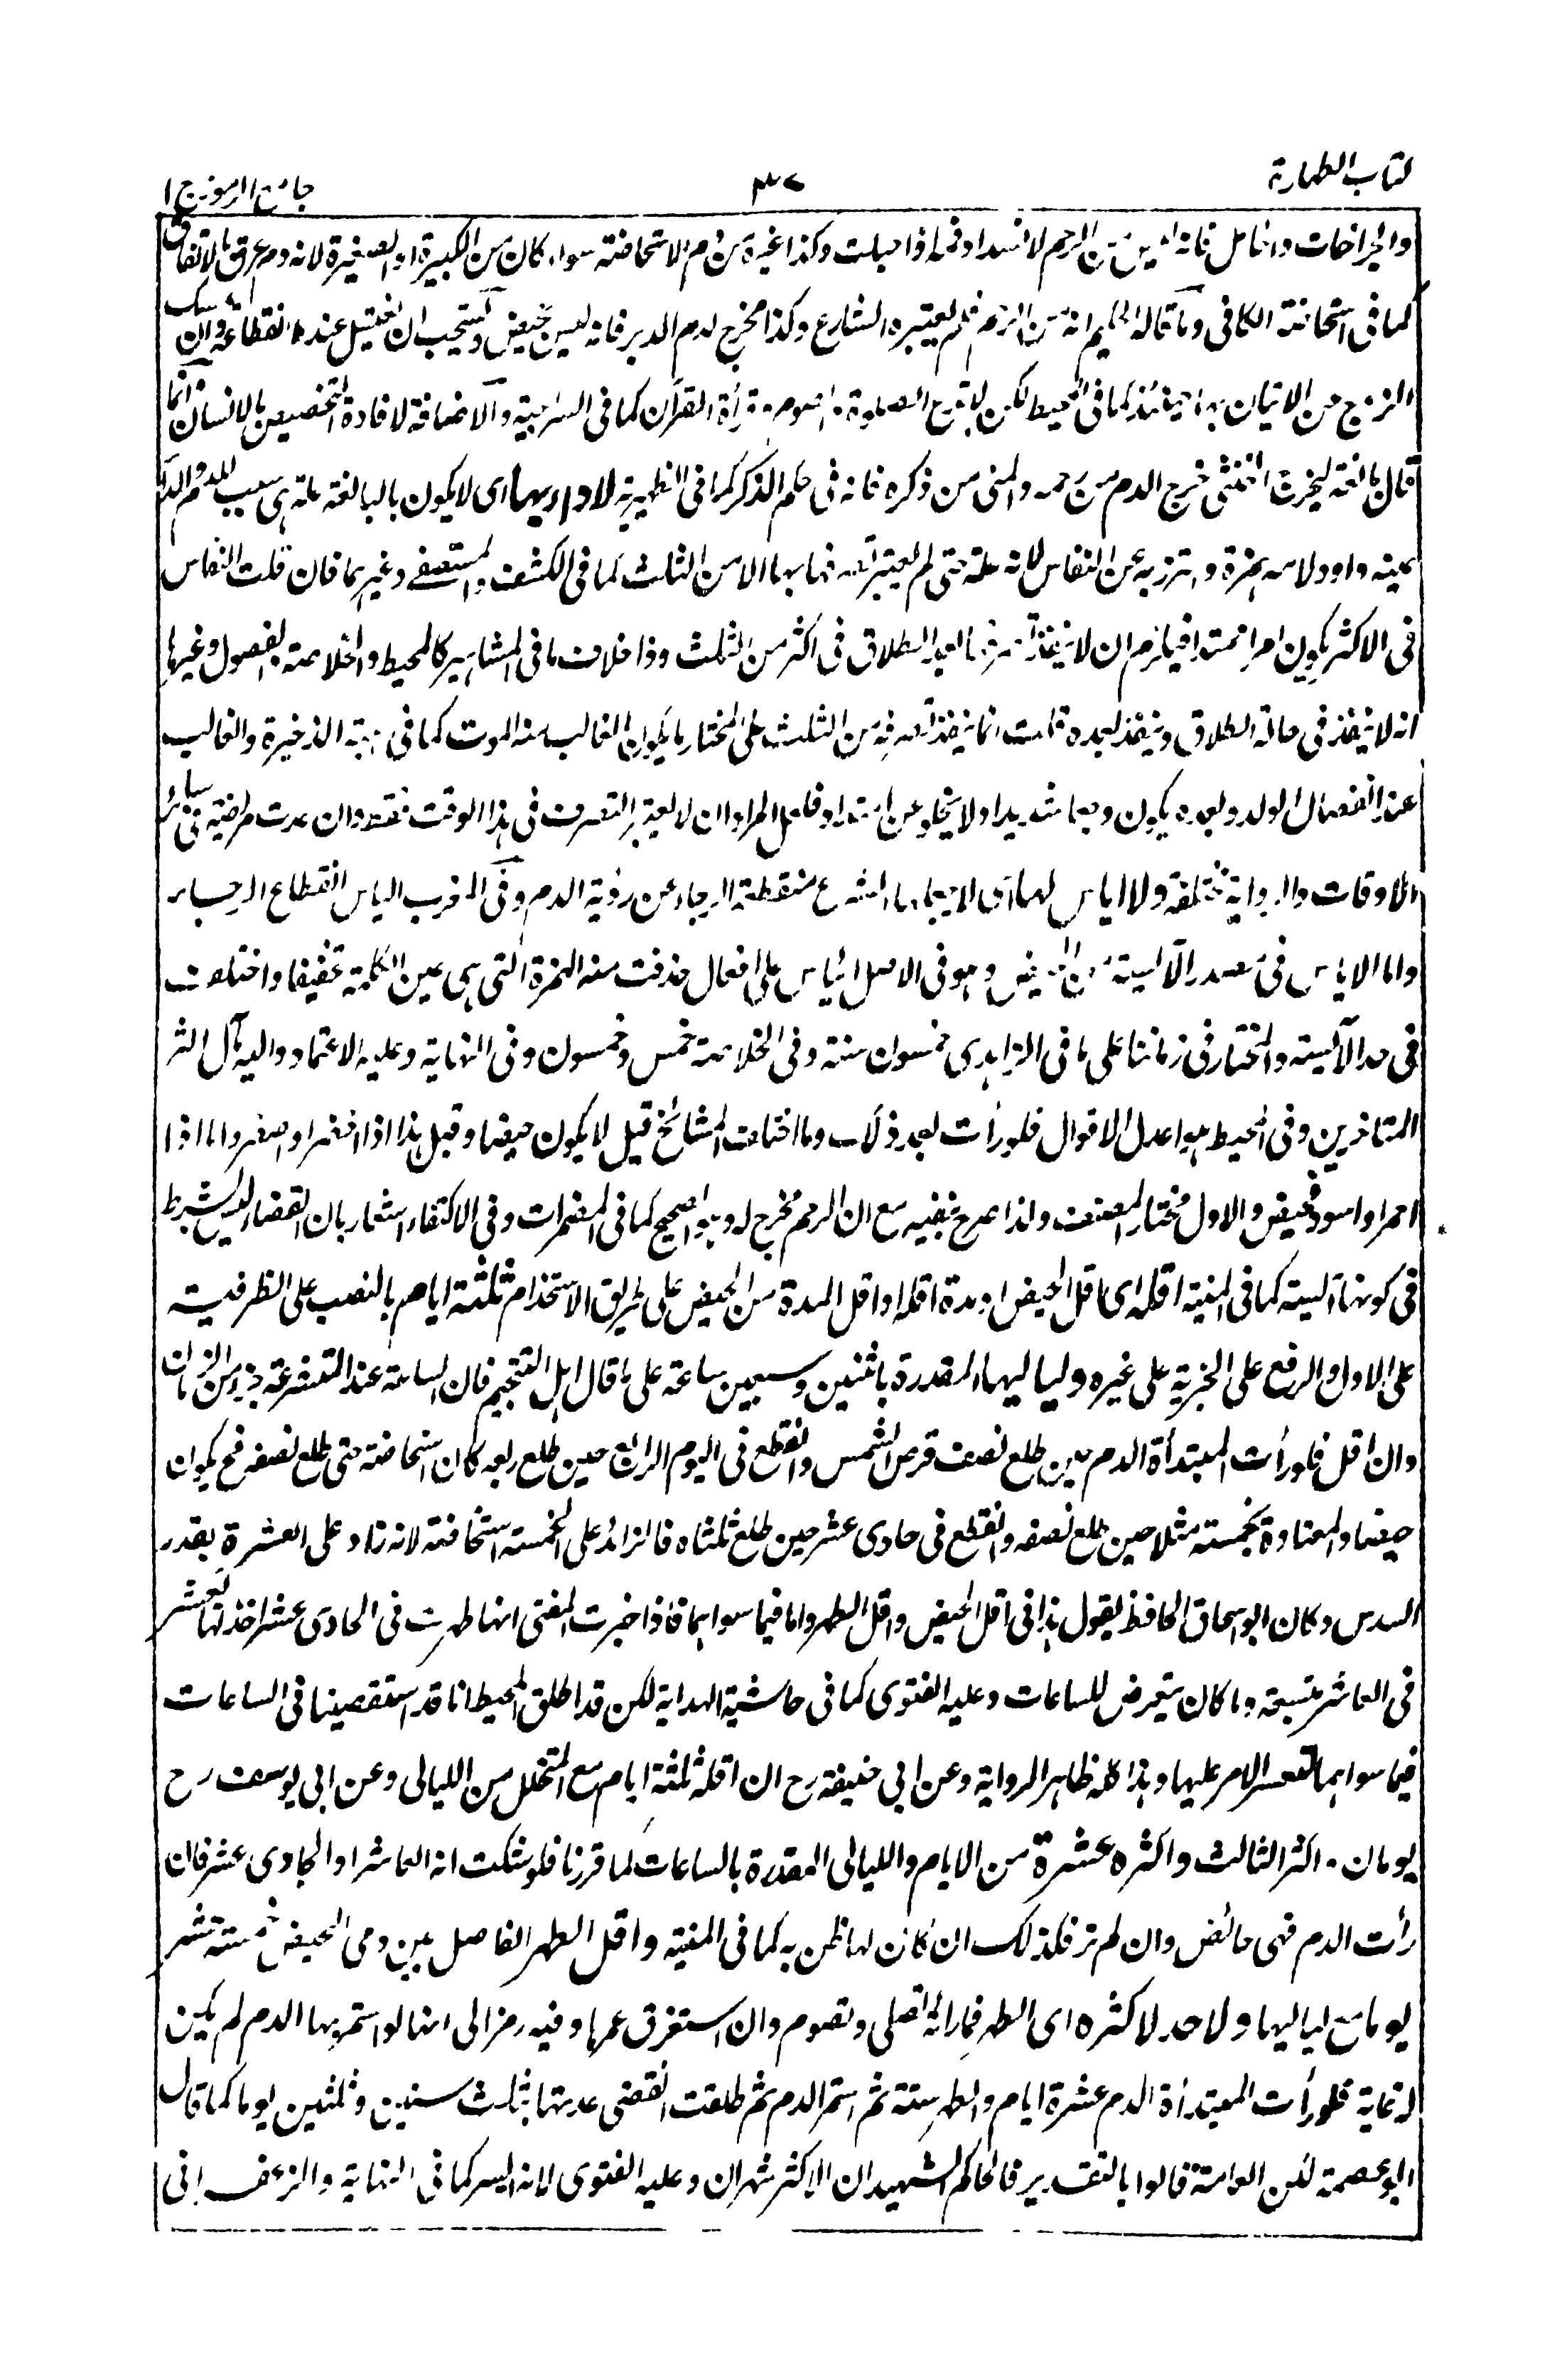 كتاب الطهارة
٣٧
جامع الرموز ج ١
والجراحات والحامل فانه ليس من الرحم لانسداد فمه اذا حبلت وكذا غيره من دم الاستحاضة سواء كان من الكبيرة او الصغيرة لانه دم عرق بالاتفاق
كما فى استحاضة الكافى وما قاله الحكيم انه من الرحم فلم يعتبره الشارع وكذا مخرج لدم الدبر فانه ليس بحيض ويستحب ان تغتسل عند انقطاعه وان
الزوج عن الاتيان بها حينئذ كما فى المحيط لكن لا تدع الصلوة والصوم وقرأة القرآن كما فى السراجية والاضافة لافادة التخصيص بالانسان وانما
قال بالغة ليخرج الخنثى خرج الدم من رحمه والمنى من ذكره فانه فى حكم الذكر كما فى الظهيرية لا داء بها اى لا يكون بالبالغة علة هى سبب الدم
عينه واو ولامه همزة واحترز به عن النفاس لانه علة حتى لم يعتبر تصرفها الا من الثلث كما فى الكشف والمستصفى وغيرهما فان قلت النفاس
فى الاكثر يكون امرا ممتدا فيلزم ان لا ينفذ تصرفها بعد الطلاق فى اكثر من الثلث وذا خلاف ما فى المشاهير كالمحيط والخلاصة والفصول وغيرها
انه لا ينفذ فى حالة الطلاق وينفذ بعده قلت انما ينفذ تصرفه من الثلث على المختار ما يكون الغالب منه الموت كما فى هبة الذخيرة والغالب
عند انفصال الولد وبعده يكون وجعا شديدا ولا يخلو عن امتداد فلعل المراد ان لا يعتبر التصرف فى هذا الوقت فقط وان عدت مريضة فى سائر
الاوقات والرواية مختلفة ولا اياس لها اى لا يجعلها الشرع منقطعة الرجاء عن رؤية الدم وفى المغرب الياس انقطاع الرجاء
واما الاياس فى مصدر الآيسة من الحيض وهو فى الاصل ائياس على افعال حذفت منه الهمزة التى هى عين الكلمة تخفيفا واختلف
فى حد الآيسة والمختار فى زماننا على ما فى الزاهدى خمسون سنة وفى الخلاصة خمس وخمسون وفى النهاية وعليه الاعتماد واليه مال اكثر
المتاخرين وفى المحيط هو اعدل الاقوال فلو رأت بعد ذلك دما اختلف المشائخ قيل لا يكون حيضا وقيل هذا اذا اخضر او اصفر واما اذا
احمر او اسود فحيض والاول مختار المصنف ولذا صرح بنفيه مع ان الرحم مخرج له وهو الصحيح كما فى المضمرات وفى الاكتفاء اشعار بان القضاء ليس بشرط
فى كونها آيسة كما فى المنية اقله اى اقل الحيض او مدة اقله او اقل المدة من الحيض على طريق الاستخدام ثلثة ايام بالنصب على الظرفية
على الاول والرفع على الخبرية على غيره ولياليها المقدرة باثنين وسبعين ساعة على ما قال اهل التنجيم فان الساعة عند المتشرعة جزء من الزمان
وان قل فلو رأت المبتدأة الدم حين طلع نصف قرص الشمس وانقطع فى اليوم الرابع حين طلع ربعه كان استحاضة حتى طلع نصفه فح يكون
حيضا والمعتادة بخمسة مثلا حين طلع نصفه وانقطع فى حادى عشر حين طلع ثلثاه فالزائد على الخمسة استحاضة لانه زاد على العشرة بقدر
السدس وكان ابو اسحاق الحافظ يقول هذا فى اقل الحيض واقل الطهر واما فيما سواهما فاذا خبرت المفتى انها طهرت فى الحادى عشر اخذ لها بعشر
فى العاشر بتسعة وما كان يتعرض للساعات وعليه الفتوى كما فى حاشية الهداية لكن قد اطلق المحيط انا قد استقصينا فى الساعات
فيما سواهما لتعسر الامر عليها وهذا كله ظاهر الرواية وعن ابي حنيفة رح ان اقله ثلثة ايام مع المتخلل من الليالى وعن ابى يوسف رح
يومان واكثر الثالث واكثره عشرة من الايام والليالى المقدرة بالساعات لما قررنا فلو شكت انه العاشر او الحادى عشر فان
رأت الدم فهى حائض وان لم تر فكذلك ان كان لها ظن به كما فى المنية واقل الطهر الفاصل بين دمى الحيض خمسة عشر
يوما مع لياليها ولا حد لاكثره اى الطهر فما رأته تصلى وتصوم وان استغرق عمرها وفيه رمز الى انها لو استمر بها الدم لم يكن
له غاية فلو رأت المبتدأة الدم عشرة ايام والطهر ستة ثم استمر الدم ثم طلقت انقضى عدتها بثلث سنين وثلثين يوما كما قال
ابو عصمة لكن العامة قالوا بالتقدير فالحاكم الشهيد ان الاكثر شهران وعليه الفتوى لانه ايسر كما فى النهاية والزعفرانى